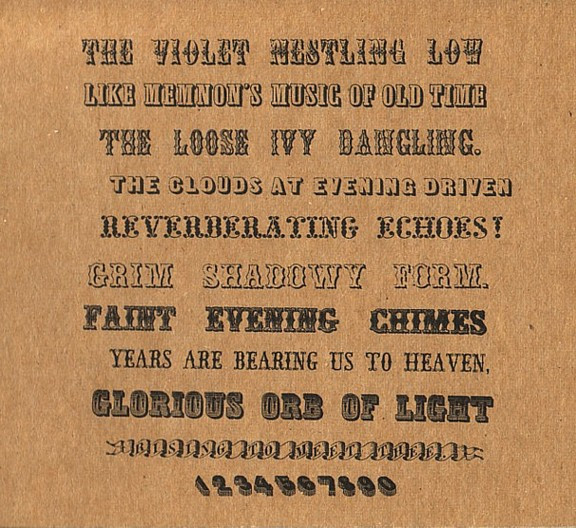 THE VIOLET NESTLING LOW
LIKE MEMNON'S MUSIC OF OLD TIME
THE LOOSE IVY DANGLING.
THE CLOUDS AT EVENING DRIVEN
REVERBERATING ECHOES!
GRIM SHADOWY FORM.
FAINT EVENING CHIMES
YEARS ARE BEARING US TO HEAVEN,
GLORIOUS ORB OF LIGHT
TO MEET THEE
1234567890